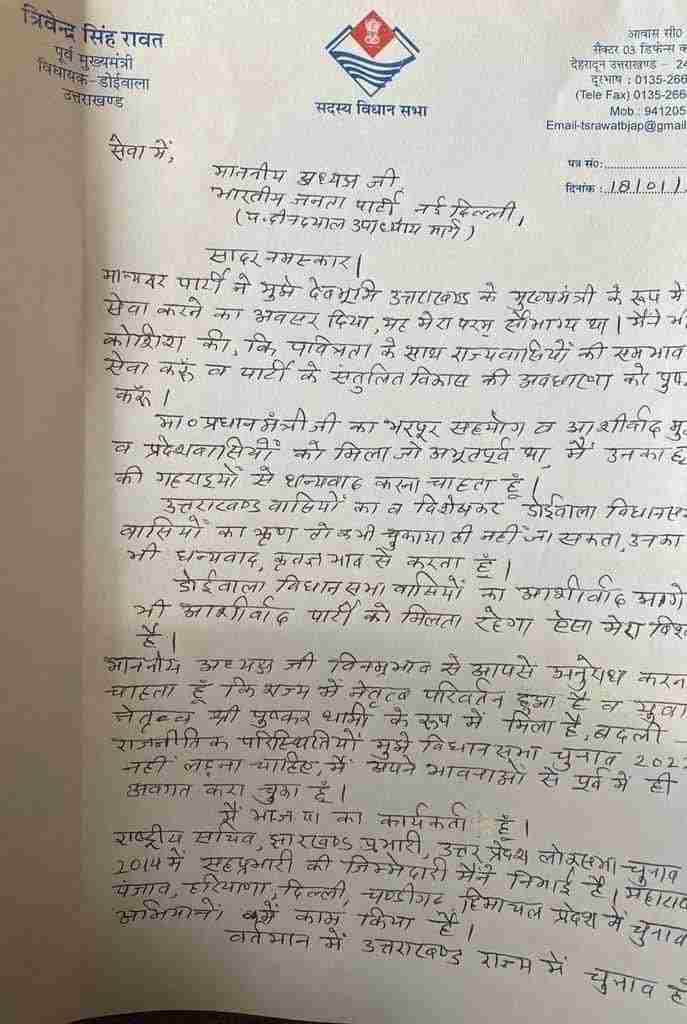 त्रिवेन्द्र सिंह रावत
पूर्व मुख्यमंत्री
विधायक-डोईवाला
उत्तराखण्ड
सदस्य विधान सभा
आवास सी०
सैक्टर 03 डिफेन्स क
देहरादून उत्तराखण्ड - 24
दूरभाष : 0135-266
(Tele Fax) 0135-266
Mob.: 941205
Email-tsrawatbjap@gmail
पत्र सं०:
दिनांक : 18/01/
सेवा में,
माननीय अध्यक्ष जी
भारतीय जनता पार्टी नई दिल्ली,
(पं. दीनदयाल उपाध्याय मार्ग)
सादर नमस्कार।
मान्यवर पार्टी ने मुझे देवभूमि उत्तराखण्ड के मुख्यमंत्री के रूप में
सेवा करने का अवसर दिया, यह मेरा परम् सौभाग्य था। मैंने भी
कोशिश की, कि पवित्रता के साथ राज्यवासियों की समभाव
सेवा करूँ व पार्टी के संतुलित विकास की अवधारणा को पुष्
करूँ।
मा० प्रधानमंत्री जी का भरपूर सहयोग व आशीर्वाद मु
व प्रदेशवासियों को मिला जो अभूतपूर्व था, मैं उनका हृ
की गहराइयों से धन्यवाद करना चाहता हूँ।
उत्तराखण्ड वासियों का व विशेषकर डोईवाला विधानस
वासियों का ऋण तो कभी चुकाया ही नहीं जा सकता, उनका
भी धन्यवाद, कृतज्ञ भाव से करता हूँ।
डोईवाला विधानसभा वासियों का आशीर्वाद आगे
भी आशीर्वाद पार्टी को मिलता रहेगा ऐसा मेरा विश
है।
माननीय अध्यक्ष जी विनम्रभाव से आपसे अनुरोध करन
चाहता हूँ कि राज्य में नेतृत्व परिवर्तन हुआ है व युवा
नेतृत्व श्री पुष्कर धामी के रूप में मिला है, बदली
राजनीतिक परिस्थितियों मुझे विधानसभा चुनाव 202
नहीं लड़ना चाहिए, मैं अपने भावनाओं से पूर्व में ही
अवगत करा चुका हूँ।
मैं भाजपा का कार्यकर्ता हूँ।
राष्ट्रीय सचिव, झारखण्ड प्रभारी, उत्तर प्रदेश लोकसभा चुनाव
2014 में सहप्रभारी की जिम्मेदारी मैंने निभाई है। महारा
पंजाब, हरियाणा, दिल्ली, चण्डीगढ़ हिमाचल प्रदेश में चुनाव
अभियानों में काम किया है।
वर्तमान में उत्तराखण्ड राज्य में चुनाव ह